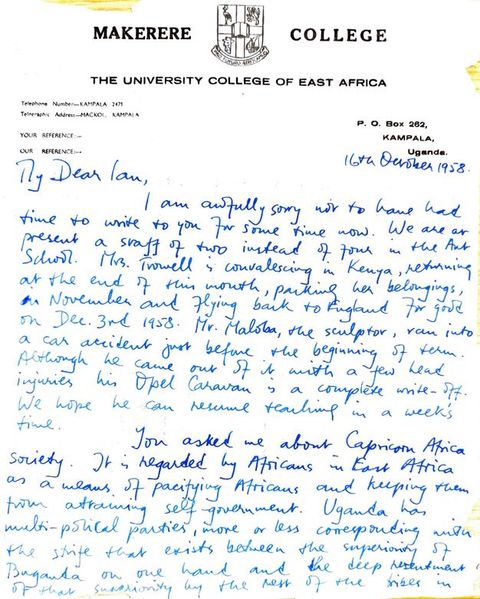 MAKERERE COLLEGE
THE UNIVERSITY COLLEGE OF EAST AFRICA
Telephone Number:—KAMPALA 2471
Telegraphic Address:—MACKOL, KAMPALA
P. O. Box 262,
KAMPALA,
Uganda.
YOUR REFERENCE:—
OUR REFERENCE:—
16th October 1958.
My Dear Ian,
I am awfully sorry not to have had
time to write to you for some time now. We are at
present a staff of two instead of four in the Art
School. Mrs. Trowell is convalescing in Kenya, returning
at the end of this month, packing her belongings,
in November and flying back to England for good
on Dec. 3rd 1958. Mr. Maloba, the sculptor, ran into
a car accident just before the beginning of term.
Although he came out of it with a few head
injuries his Opel Caravan is a complete write-off.
We hope he can resume teaching in a week's
time.
You asked me about Capricorn Africa
Society. It is regarded by Africans in East Africa
as a means of pacifying Africans and keeping them
from attaining self-government. Uganda has
multi-political parties, more or less corresponding with
the strife that exists between the superiority of
Buganda on one hand and the deep resentment
of that superiority by the rest of the tribes in